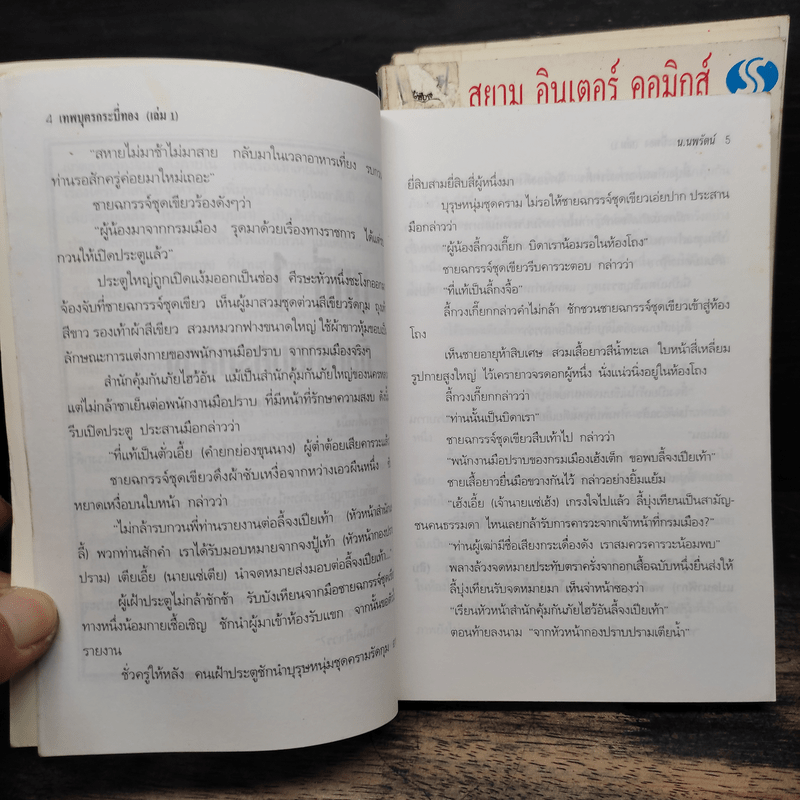 สยาม อินเตอร์ คอมิกส์
4 เทพบุตรกระบี่ทอง (เล่ม 1)
“สหายไม่มาช้าไม่มาสาย กลับมาในเวลาอาหารเที่ยง รบกวน
ท่านรอสักครู่ค่อยมาใหม่เถอะ”
ชายฉกรรจ์ชุดเขียวร้องดังๆว่า
“ผู้น้องมาจากกรมเมือง รุดมาด้วยเรื่องทางราชการ ได้แต่
กวนให้เปิดประตูแล้ว”
ประตูใหญ่ถูกเปิดแง้มออกเป็นช่อง ศีรษะหัวหนึ่งชะโงกออก
จ้องจับที่ชายฉกรรจ์ชุดเขียว เห็นผู้มาสวมชุดต่วนสีเขียวรัดกุม
สีขาว รองเท้าผ้าสีเขียว สวมหมวกฟางขนาดใหญ่ ใช้ผ้าขาวหุ้มขอบ
ลักษณะการแต่งกายของพนักงานมือปราบ จากกรมเมืองจริงๆ
สำนักคุ้มกันภัยไฮว้อัน แม้เป็นสำนักคุ้มกันภัยใหญ่ของนคร
แต่ไม่กล้าชาเย็นต่อพนักงานมือปราบ ที่มีหน้าที่รักษาความสงบ
รีบเปิดประตู ประสานมือกล่าวว่า
“ที่แท้เป็นตั่วเอี้ย (คำยกย่องขุนนาง) ผู้ต่ำต้อยเสียคารวะแล้ว
ชายฉกรรจ์ชุดเขียวดึงผ้าซับเหงื่อจากหว่างเอวผืนหนึ่ง
หยาดเหงื่อบนใบหน้า กล่าวว่า
“ไม่กล้ารบกวนพี่ท่านรายงานต่อลี้จงเปียเท้า (หัวหน้าสำนัก
ลี้) พวกท่านสักคำ เราได้รับมอบหมายจากจงปู้เท้า (หัวหน้ากอง
ปราม) เตียเอี้ย (นายแซ่เตีย) นำจดหมายส่งมอบต่อลี้จงเปียเท้า..”
ผู้เฝ้าประตูไม่กล้าชักช้า รับบังเหียนจากมือชายฉกรรจ์ชุด
ทางหนึ่งน้อมกายเชื้อเชิญ ชักนำผู้มาเข้าห้องรับแขก จากนั้น
รายงาน
ชั่วครู่ให้หลัง คนเฝ้าประตูชักนำบุรุษหนุ่มชุดครามรัดกุม
น.นพรัตน์ 5
ยี่สิบสามยี่สิบสี่ผู้หนึ่งมา
บุรุษหนุ่มชุดคราม ไม่รอให้ชายฉกรรจ์ชุดเขียวเอ่ยปาก ประสาน
มือกล่าวว่า
“ผู้น้องลี้กวงเกี๊ยก บิดาเราน้อมรอในห้องโถง”
ชายฉกรรจ์ชุดเขียวรีบคารวะตอบ กล่าวว่า
“ที่แท้เป็นลี้กงจื้อ”
ลี้กวงเกี๊ยกกล่าวคำไม่กล้า ชักชวนชายฉกรรจ์ชุดเขียวเข้าสู่ห้อง
โถง
เห็นชายอายุห้าสิบเศษ สวมเสื้อยาวสีน้ำทะเล ใบหน้าสี่เหลี่ยม
รูปกายสูงใหญ่ ไว้เครายาวจรดอกผู้หนึ่ง นั่งแน่วนิ่งอยู่ในห้องโถง
ลี้กวงเกี๊ยกกล่าวว่า
“ท่านนั้นเป็นบิดาเรา”
ชายฉกรรจ์ชุดเขียวสืบเท้าไป กล่าวว่า
“พนักงานมือปราบของกรมเมืองเฮ้งเต็ก ขอพบลี้จงเปียเท้า”
ชายเสื้อยาวยื่นมือขวางกันไว้ กล่าวอย่างยิ้มแย้ม
“เฮ้งเอี้ย (เจ้านายแซ่เฮ้ง) เกรงใจไปแล้ว ลี้บุ่งเทียนเป็นสามัญ-
ชนคนธรรมดา ไหนเลยกล้ารับการคารวะจากเจ้าหน้าที่กรมเมือง?”
“ท่านผู้เฒ่ามีชื่อเสียงกระเดื่องดัง เราสมควรคารวะน้อมพบ”
พลางล้วงจดหมายประทับตราครั่งจากอกเสื้อฉบับหนึ่งยื่นส่งให้
ลี้บุ่งเทียนรับจดหมายมา เห็นจ่าหน้าซองว่า
“เรียนหัวหน้าสำนักคุ้มกันภัยไฮว้อันลี้จงเปียเท้า”
ตอนท้ายลงนาม “จากหัวหน้ากองปราบปรามเตียน้ำ”